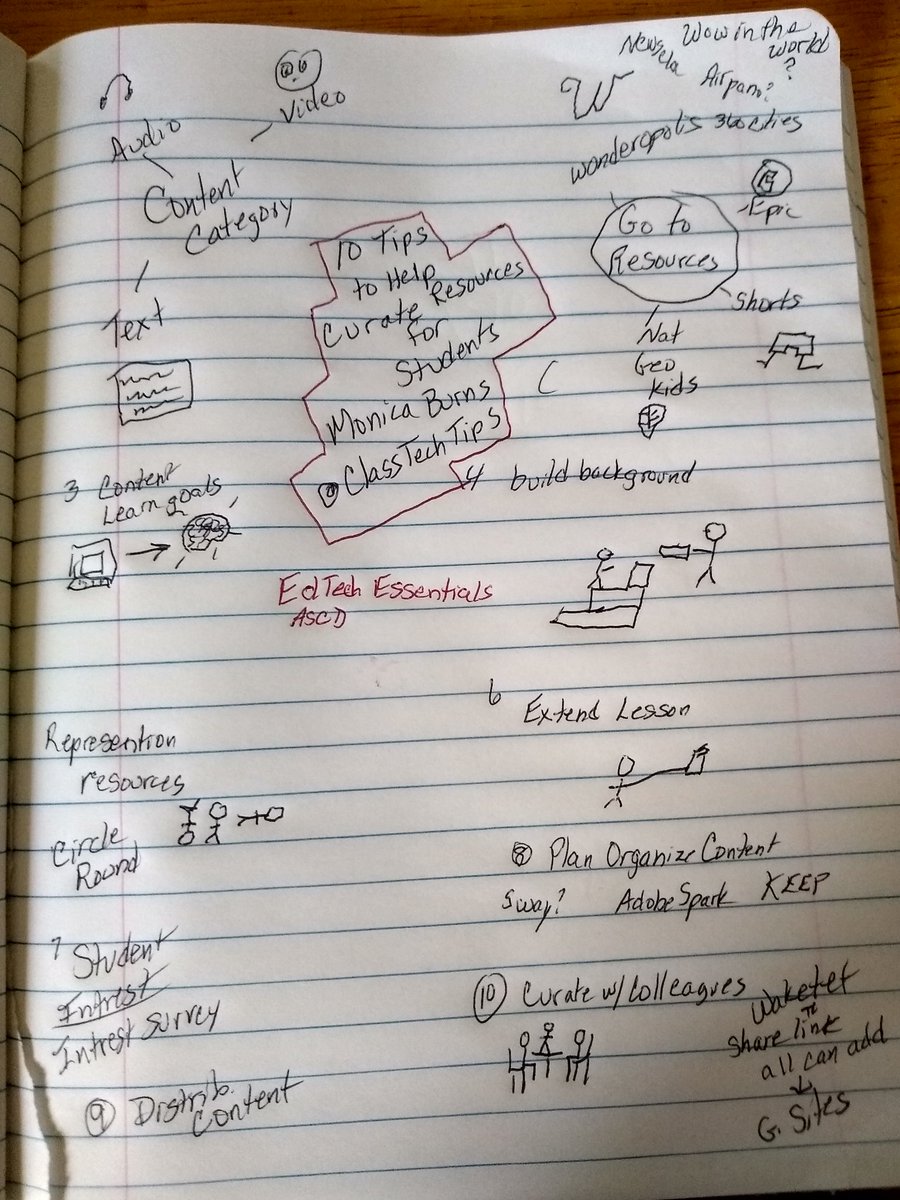 Audio
Video
Content
Category
Text
10 Tips
to Help
Curate Resources
for
Students
Monica Burns
ClassTechTips
EdTech Essentials
ASCD
W
Newsela
Wow in the
world
?
Airpano?
Wonderopolis 360cities
Go to
Resources
Epic
Shorts
Nat
Geo
Kids
3 Content
Learn goals
4 build background
Represention
resources
Circle
Round
6
Extend Lesson
7 Student
Intrest
Intrest Survey
8 Plan Organize Content
Sway? Adobe Spark KEEP
9 Distrib.
Content
10 Curate w/Colleagues
Wakelet
share link
all can add
G. Sites